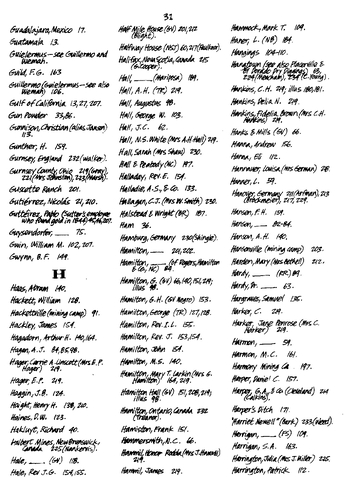 31
Guadalajara, Mexico 17.
Guatamala 13.
Guielermus - see Guillermo and
Weimah.
Guild, F.G. 163
Guillermo (Guielermus - see also
Weimah) 106.
Gulf of California 13, 27, 207.
Gun Powder 33, 86.
Gunnison, Christian (alias Jansen)
113.
Gunther, H. 159.
Gursey, England 232
Gurnsey County, Ohio 219
Guscotte Ranch 201.
Gutiérrez, Nicolás 21, 210.
Gutiérrez, Pablo (Sutter's employee
who found gold in 1844)
Guysendorfer, ___ 75.
Gwin, William M. 102, 207.
Gwynn, B.F. 149.
H
Haas, Abram 140.
Hackett, William 128.
Hackettville (mining camp) 91.
Hackley, James 154.
Hagadorn, Arthur H. 140, 164.
Hagan, A.J. 84, 85, 98.
Hager, Carrie A. Linscott (Mrs. E.P.
Hager) 219.
Hager, E.P. 219.
Haggin, J.B. 126.
Haight, Henry H. 138, 210.
Haines, D.W. 123.
Hakluyt, Richard 40.
Halbert Mines, New Brunswick,
Canada 225
Hale, ___ (GV) 118.
Hale, Rev J.G. 154, 155.
Half Mile House (GV) 201, 212
(Bright).
Halfway House (HST) 60, 217
Halifax, Nova Scotia, Canada 215
(G. Cooper).
Hall, ___ (Mariposa) 189.
Hall, A.H. (TR) 219.
Hall, Augustus 98.
Hall, George W. 103.
Hall, J.C. 62.
Hall, N.S. White (Mrs A.H. Hall) 219.
Hall, Sarah (Mrs Shaw) 230.
Hall & Peabody (NC) 197.
Halladay, Rev. E. 154.
Halladie, A.S., & Co. 133.
Hallagan, C.Z. (Mrs W. Smith) 230.
Halstead & Wright (BR) 187.
Ham 36.
Hamburg, Germany 230 (Shingle).
Hamilton, ___ 201, 202.
Hamilton, ___ (of Rogers, Hamilton
& Co., NC) 89.
Hamilton, G. (GV) 66, 140, 151, 219;
illus 98.
Hamilton, G.H. (GV Negro) 153.
Hamilton, George (TR) 127, 128.
Hamilton, Rev. I.L. 155.
Hamilton, Rev. J. 153, 154.
Hamilton, John 154.
Hamilton, M.S. 140.
Hamilton, Mary T. Larkin (Mrs. G.
Hamilton) 164, 219.
Hamilton Hall (GV) 57, 208, 219;
illus 98.
Hamilton, Ontario, Canada 232
(Treloar).
Hamiston, Frank 151.
Hammersmith, N.C. 66.
Hammill, Honor Rodda (Mrs J. Hammill)
219.
Hammil, James 219.
Hammock, Mark T. 109.
Haner, L. (NB) 184
Hangings 104-110.
Hankins, C.H. 219, illus 180, 181.
Hankins, Delia N. 219.
Hankins, Fidelia Brown (Mrs. C.H.
Hankins) 219.
Hanks & Mills (GV) 66.
Hanna, Andrew 56.
Hanna, Eli 112.
Hannawer, Louisa (Mrs German) 218.
Hanner, L. 59.
Hanover, Germany 201
Hanson, F.H. 139.
Hanson, ___ 82-84.
Hanson, A.H. 140.
Hansonville (mining camp) 203.
Harden, Mary (Mrs Bethell) 212.
Hardy, ___ (FR) 89.
Hardy, Dr. ___ 63.
Hargraves, Samuel 135.
Harker, C. 219.
Harker, Jane Penrose (Mrs C.
Harker) 219.
Harmon, ___ 59.
Harmon, M.C. 161.
Harmony Mining Co 197.
Harper, Daniel C. 157.
Harper, G.A., & Co (Cleveland) 214
Harper's Ditch 171.
"Harriet Newell" (Bark) 233
Harrigan, ___ (FS) 109.
Harrigan, S.A. 163.
Harrington, Julia (Mrs J. Miller) 225.
Harrington, Patrick 112.